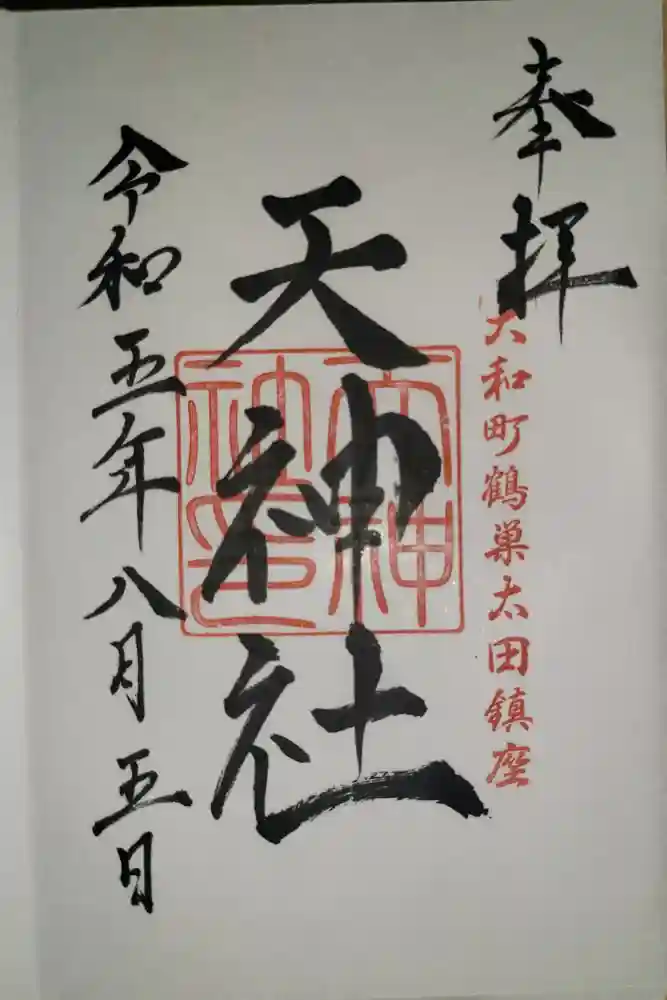 奉拝
大和町鶴巣太田鎮座
天神社
令和五年八月五日